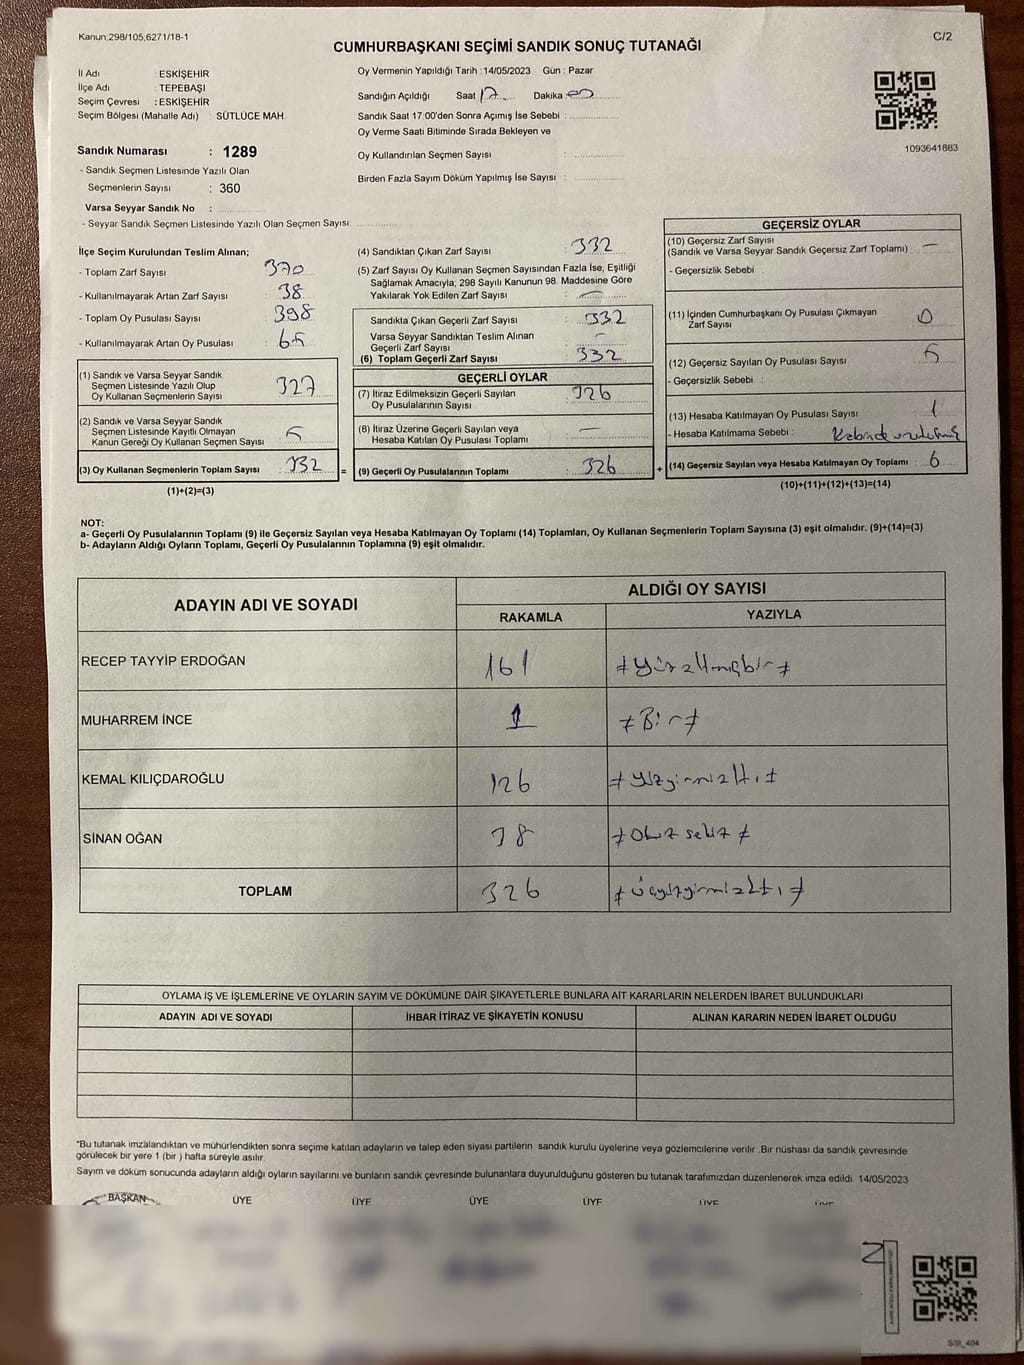 Kanun:298/105,6271/18-1
C/2
CUMHURBAŞKANI SEÇİMİ SANDIK SONUÇ TUTANAĞI
İl Adı : ESKİŞEHİR
İlçe Adı : TEPEBAŞI
Seçim Çevresi : ESKİŞEHİR
Seçim Bölgesi (Mahalle Adı) : SÜTLÜCE MAH.
Sandık Numarası : 1289
- Sandık Seçmen Listesinde Yazılı Olan
Seçmenlerin Sayısı : 360
Varsa Seyyar Sandık No :
- Seyyar Sandık Seçmen Listesinde Yazılı Olan Seçmen Sayısı:
Oy Vermenin Yapıldığı Tarih : 14/05/2023 Gün : Pazar
Sandığın Açıldığı Saat 17 Dakika 00
Sandık Saat 17:00'den Sonra Açımış İse Sebebi :
Oy Verme Saati Bitiminde Sırada Bekleyen ve
Oy Kullandırılan Seçmen Sayısı :
Birden Fazla Sayım Döküm Yapılmış İse Sayısı :
1093641883
İlçe Seçim Kurulundan Teslim Alınan;
- Toplam Zarf Sayısı : 370
- Kullanılmayarak Artan Zarf Sayısı : 38
- Toplam Oy Pusulası Sayısı : 398
- Kullanılmayarak Artan Oy Pusulası : 65
(1) Sandık ve Varsa Seyyar Sandık
Seçmen Listesinde Yazılı Olup
Oy Kullanan Seçmenlerin Sayısı : 327
(2) Sandık ve Varsa Seyyar Sandık
Seçmen Listesinde Kayıtlı Olmayan
Kanun Gereği Oy Kullanan Seçmen Sayısı : 5
(3) Oy Kullanan Seçmenlerin Toplam Sayısı : 332 =
(1)+(2)=(3)
(4) Sandıktan Çıkan Zarf Sayısı : 332
(5) Zarf Sayısı Oy Kullanan Seçmen Sayısından Fazla İse, Eşitliği
Sağlamak Amacıyla; 298 Sayılı Kanunun 98. Maddesine Göre
Yakılarak Yok Edilen Zarf Sayısı : —
Sandıkta Çıkan Geçerli Zarf Sayısı : 332
Varsa Seyyar Sandıktan Teslim Alınan
Geçerli Zarf Sayısı : —
(6) Toplam Geçerli Zarf Sayısı : 332
GEÇERLİ OYLAR
(7) İtiraz Edilmeksizin Geçerli Sayılan
Oy Pusulalarının Sayısı : 326
(8) İtiraz Üzerine Geçerli Sayılan veya
Hesaba Katılan Oy Pusulası Toplamı : —
(9) Geçerli Oy Pusulalarının Toplamı : 326 +
GEÇERSİZ OYLAR
(10) Geçersiz Zarf Sayısı
(Sandık ve Varsa Seyyar Sandık Geçersiz Zarf Toplamı) : —
- Geçersizlik Sebebi :
(11) İçinden Cumhurbaşkanı Oy Pusulası Çıkmayan
Zarf Sayısı : 0
(12) Geçersiz Sayılan Oy Pusulası Sayısı : 5
- Geçersizlik Sebebi :
(13) Hesaba Katılmayan Oy Pusulası Sayısı : 1
- Hesaba Katılmama Sebebi :
(14) Geçersiz Sayılan veya Hesaba Katılmayan Oy Toplamı : 6
(10)+(11)+(12)+(13)=(14)
NOT:
a- Geçerli Oy Pusulalarının Toplamı (9) ile Geçersiz Sayılan veya Hesaba Katılmayan Oy Toplamı (14) Toplamları, Oy Kullanan Seçmenlerin Toplam Sayısına (3) eşit olmalıdır. (9)+(14)=(3)
b- Adayların Aldığı Oyların Toplamı, Geçerli Oy Pusulalarının Toplamına (9) eşit olmalıdır.
ADAYIN ADI VE SOYADI
ALDIĞI OY SAYISI
RAKAMLA
YAZIYLA
RECEP TAYYİP ERDOĞAN 161 ≠yüzaltmışbir≠
MUHARREM İNCE 1 ≠Bir≠
KEMAL KILIÇDAROĞLU 126 ≠yüzyirmialtı≠
SİNAN OĞAN 38 ≠Otuz sekiz≠
TOPLAM 326 ≠üçyüzyirmialtı≠
OYLAMA İŞ VE İŞLEMLERİNE VE OYLARIN SAYIM VE DÖKÜMÜNE DAİR ŞİKAYETLERLE BUNLARA AİT KARARLARIN NELERDEN İBARET BULUNDUKLARI
ADAYIN ADI VE SOYADI
İHBAR İTİRAZ VE ŞİKAYETİN KONUSU
ALINAN KARARIN NEDEN İBARET OLDUĞU
*Bu tutanak imzalandıktan ve mühürlendikten sonra seçime katılan adayların ve talep eden siyasi partilerin sandık kurulu üyelerine veya gözlemcilerine verilir .Bir nüshası da sandık çevresinde
görülecek bir yere 1 (bir ) hafta süreyle asılır.
Sayım ve döküm sonucunda adayların aldığı oyların sayılarını ve bunların sandık çevresinde bulunanlara duyurulduğunu gösteren bu tutanak tarafımızdan düzenlenerek imza edildi. 14/05/2023
BAŞKAN ÜYE ÜYE ÜYE ÜYE ÜYE ÜYE
SSI_404